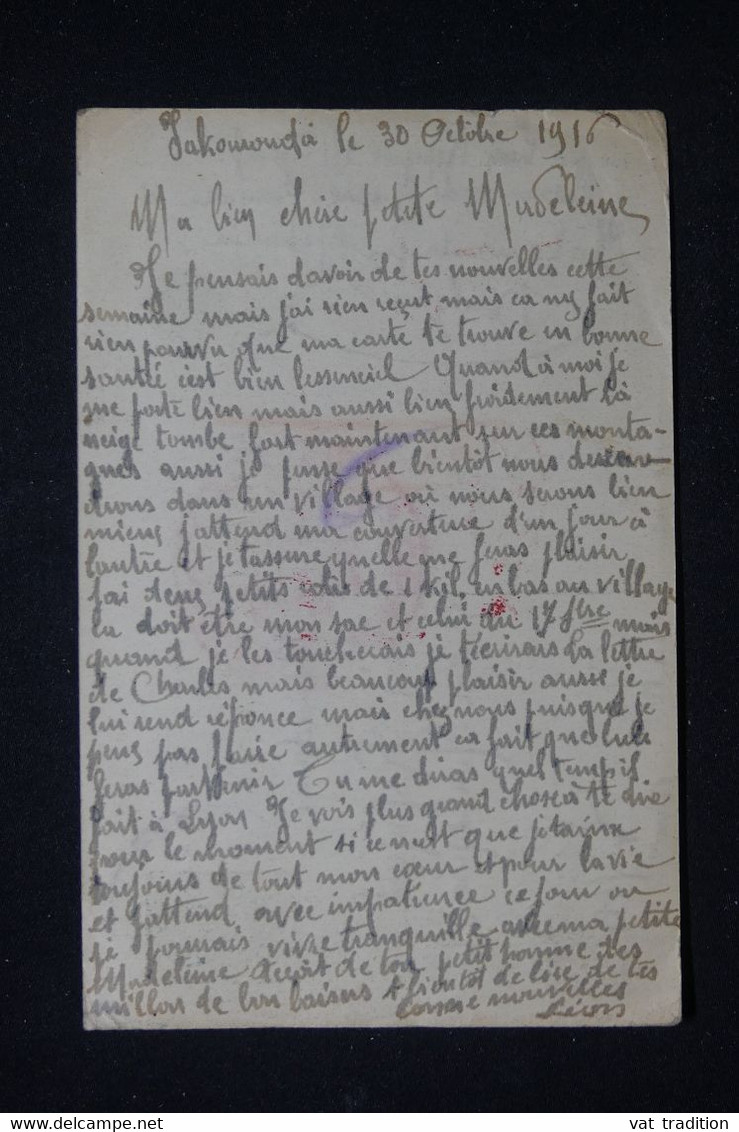 le 30 Octobre 1916
Ma bien chère petite Madeleine
Je pensais davoir de tes nouvelles cette
semaine mais j'ai rien reçut mais ca ny fait
rien pourvu que ma carte te trouve en bonne
santée c'est bien lessenciel Quand à moi je
me porte bien mais aussi bien froidement là
neige tombe fort maintenant sur ces monta-
gnes aussi je pense que bientôt nous
dans un village où nous serons bien
mieux j'attend ma couverture d'un jour à
lautre et je tassure quelle me feras plaisir
jai deux petits colis de 1 kil en bas au village
ca doit être mon sac et celui du 17 mais
quand je les toucherais je t'ecrirais La lettre
de Charles mais beaucoup plaisir aussi je
lui rend réponce mais chez nous puisque je
peux pas faire autrement ca fait que
feras parvenir Tu me diras quel temps il
fait à Lyon Je vois plus grand chose à te dire
pour le moment si ce nest que je taime
toujours de tout mon cœur et pour la vie
et j'attend avec impatience ce jour ou
je pourrais vivre tranquille avec ma petite
Madeleine de ton petit homme des
millon de bon baisers A bientôt de lire de tes
bonne nouvelles
Léon
www.delcampe.net
vat tradition